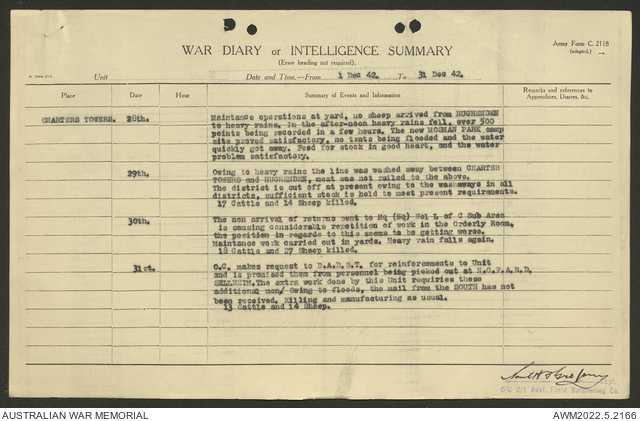 WAR DIARY or INTELLIGENCE SUMMARY
Army Form C. 2118
(adapted.)
(Erase heading not required).
Unit
Date and Time.—From 1 Dec 42. To 31 Dec 42.
Place Date Hour Summary of Events and Information Remarks and references to
Appendices, Diaries, &c.
CHARTERS TOWERS. 28th. Maintance operations at yard, no sheep arrived from HUGHENDEN
to heavy rains. In the after-noon heavy rains fell, over 500
points being recorded in a few hours. The new MOSMAN PARK camp
site proved satisfactory, no tents being flooded and the water
quickly got away. Feed for stock in good heart, and the water
problem satisfactory.
29th. Owing to heavy rains the line was washed away between CHARTER
TOWERS and HUGHENDEN, meat was not railed to the above.
The district is cut off at present owing to the washaways in all
districts, sufficient stock is held to meet present requirements.
17 Cattle and 14 Sheep killed.
30th. The non arrival of returns sent to Hq (Nq) Nol L of C Sub Area
is causing considerable repetition of work in the Orderly Room,
the position in regards to this seems to be getting worse.
Maintance work carried out in yards. Heavy rain falls again.
18 Cattle and 27 Sheep killed.
31st. O.C. makes request to D.A.D.S.T. for reinforcements to Unit
and is promised them from personnel being picked out at
SELLHEIM. The extra work done by this Unit requiries these
additional men/ Owing to floods, the mail from the SOUTH has not
been received. Killing and manufacturing as usual.
13 Cattle and 14 Sheep.
Capt.
O/C 2/1 Aust. Field Butchering Co.
AUSTRALIAN WAR MEMORIAL
AWM2022.5.2166